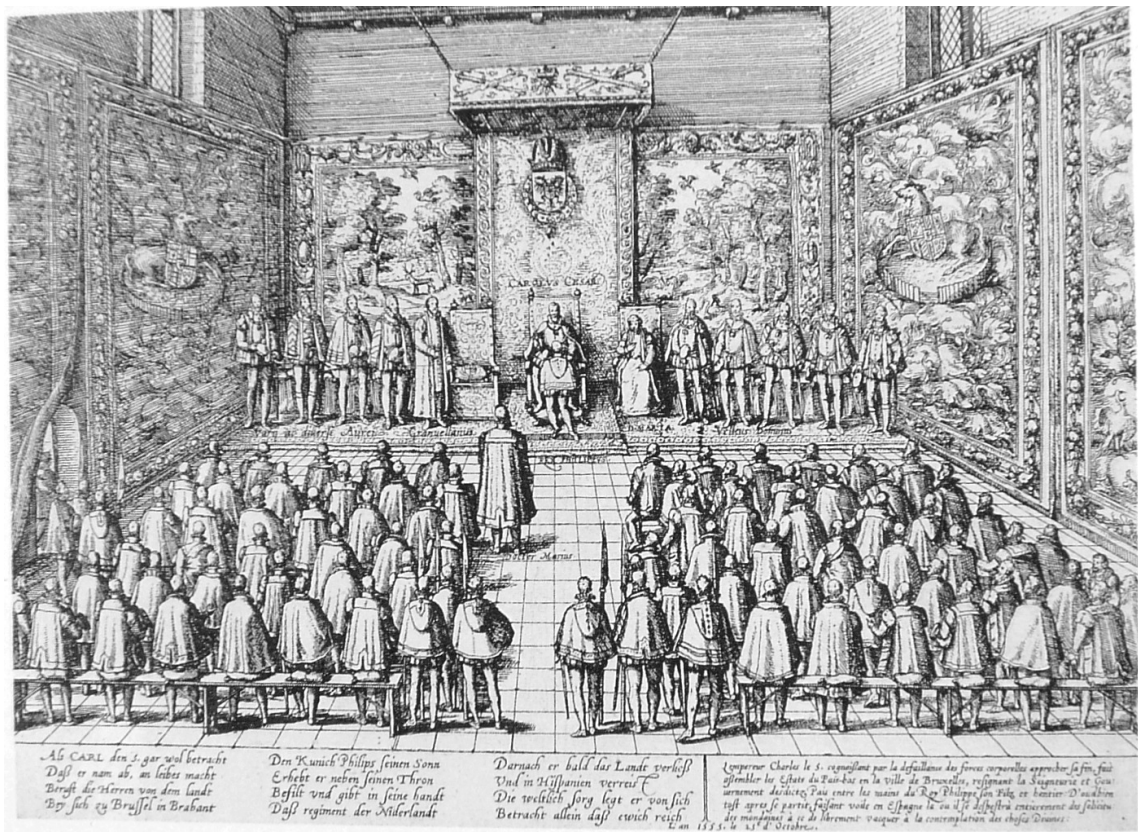 CAROLVS CESAR
Granvellanus
D. MARIA
Als CARL den 5. gar wol betracht
Daß er nam ab, an leibes macht
Berufft die Herren von dem landt
Bey sich zu Brussel in Brabant
Den Kunich Philips seinen Sonn
Erhebt er neben seinen Thron
Befilt und gibt in seine handt
Daß regiment der Niderlandt
Darnach er bald das Landt verließ
Und in Hispanien verreist
Die weltlich sorg legt er von sich
Betracht allein daß ewich reich
L'empereur Charles le 5. cognoissant par la defaillance des forces corporelles approcher sa fin, fait
assembler les Estats du Pais-bas en la ville de Bruxelles, resignant la Seigneurie et Gou:
vernement desdictz Pais entre les mains du Roy Philippe son Filz, et heritier D'ou bien
tost apres se partit, faisant voile en Espagne la ou il se despestra entierement des
des mondaines a se de librement vacquer à la contemplation des choses Divines:
L'an 1555. le 25e d'Octobre.